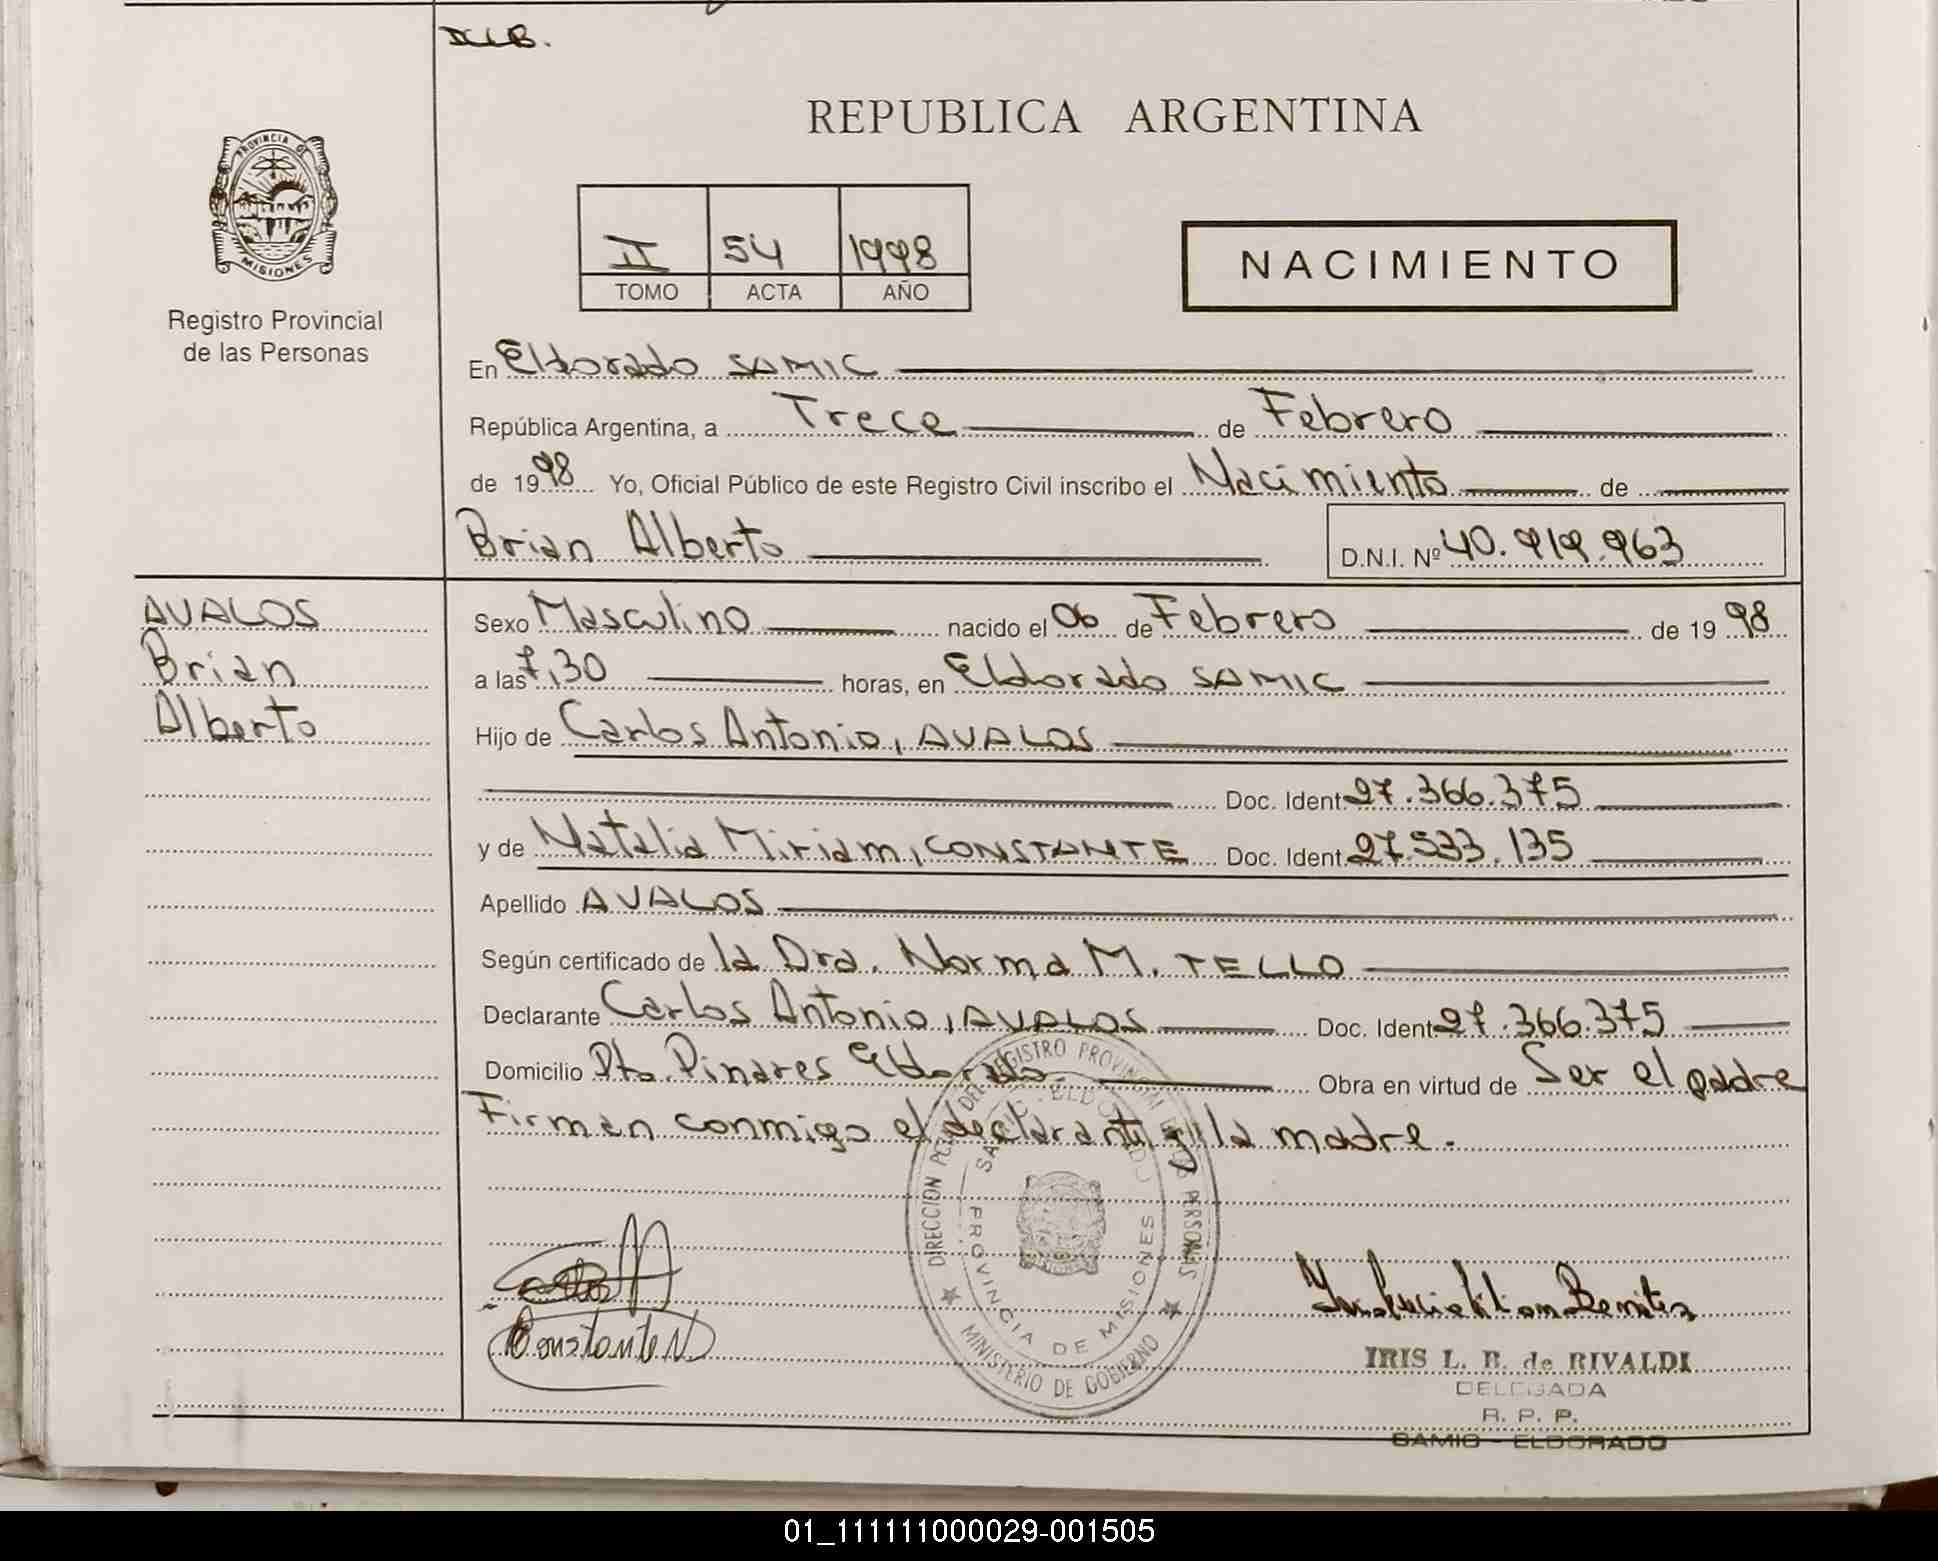 D.I.B.
REPUBLICA ARGENTINA
PROVINCIA DE
MISIONES
Registro Provincial
de las Personas
II 54 1998
TOMO ACTA AÑO
NACIMIENTO
En Eldorado SAMIC
República Argentina, a Trece de Febrero
de 1998 Yo, Oficial Público de este Registro Civil inscribo el Nacimiento de
Brian Alberto D.N.I. Nº 40.919.963
AVALOS
Brian
Alberto
Sexo Masculino nacido el 06 de Febrero de 1998
a las 7,30 horas, en Eldorado SAMIC
Hijo de Carlos Antonio, AVALOS
Doc. Ident 27.366.375
y de Natalia Miriam, CONSTANTE Doc. Ident 27.533.135
Apellido AVALOS
Según certificado de la Dra. Norma M. TELLO
Declarante Carlos Antonio, AVALOS Doc. Ident 27.366.375
Domicilio Pto. Pinares Eldorado. Obra en virtud de Ser el padre
Firman conmigo el declarante y la madre.
REGISTRO PROVINCIAL DE LAS PERSONAS
PROVINCIA DE MISIONES
MINISTERIO DE GOBIERNO
Constante N
IRIS L. B. de RIVALDI
DELEGADA
R. P. P.
SAMIC - ELDORADO
01_111111000029-001505